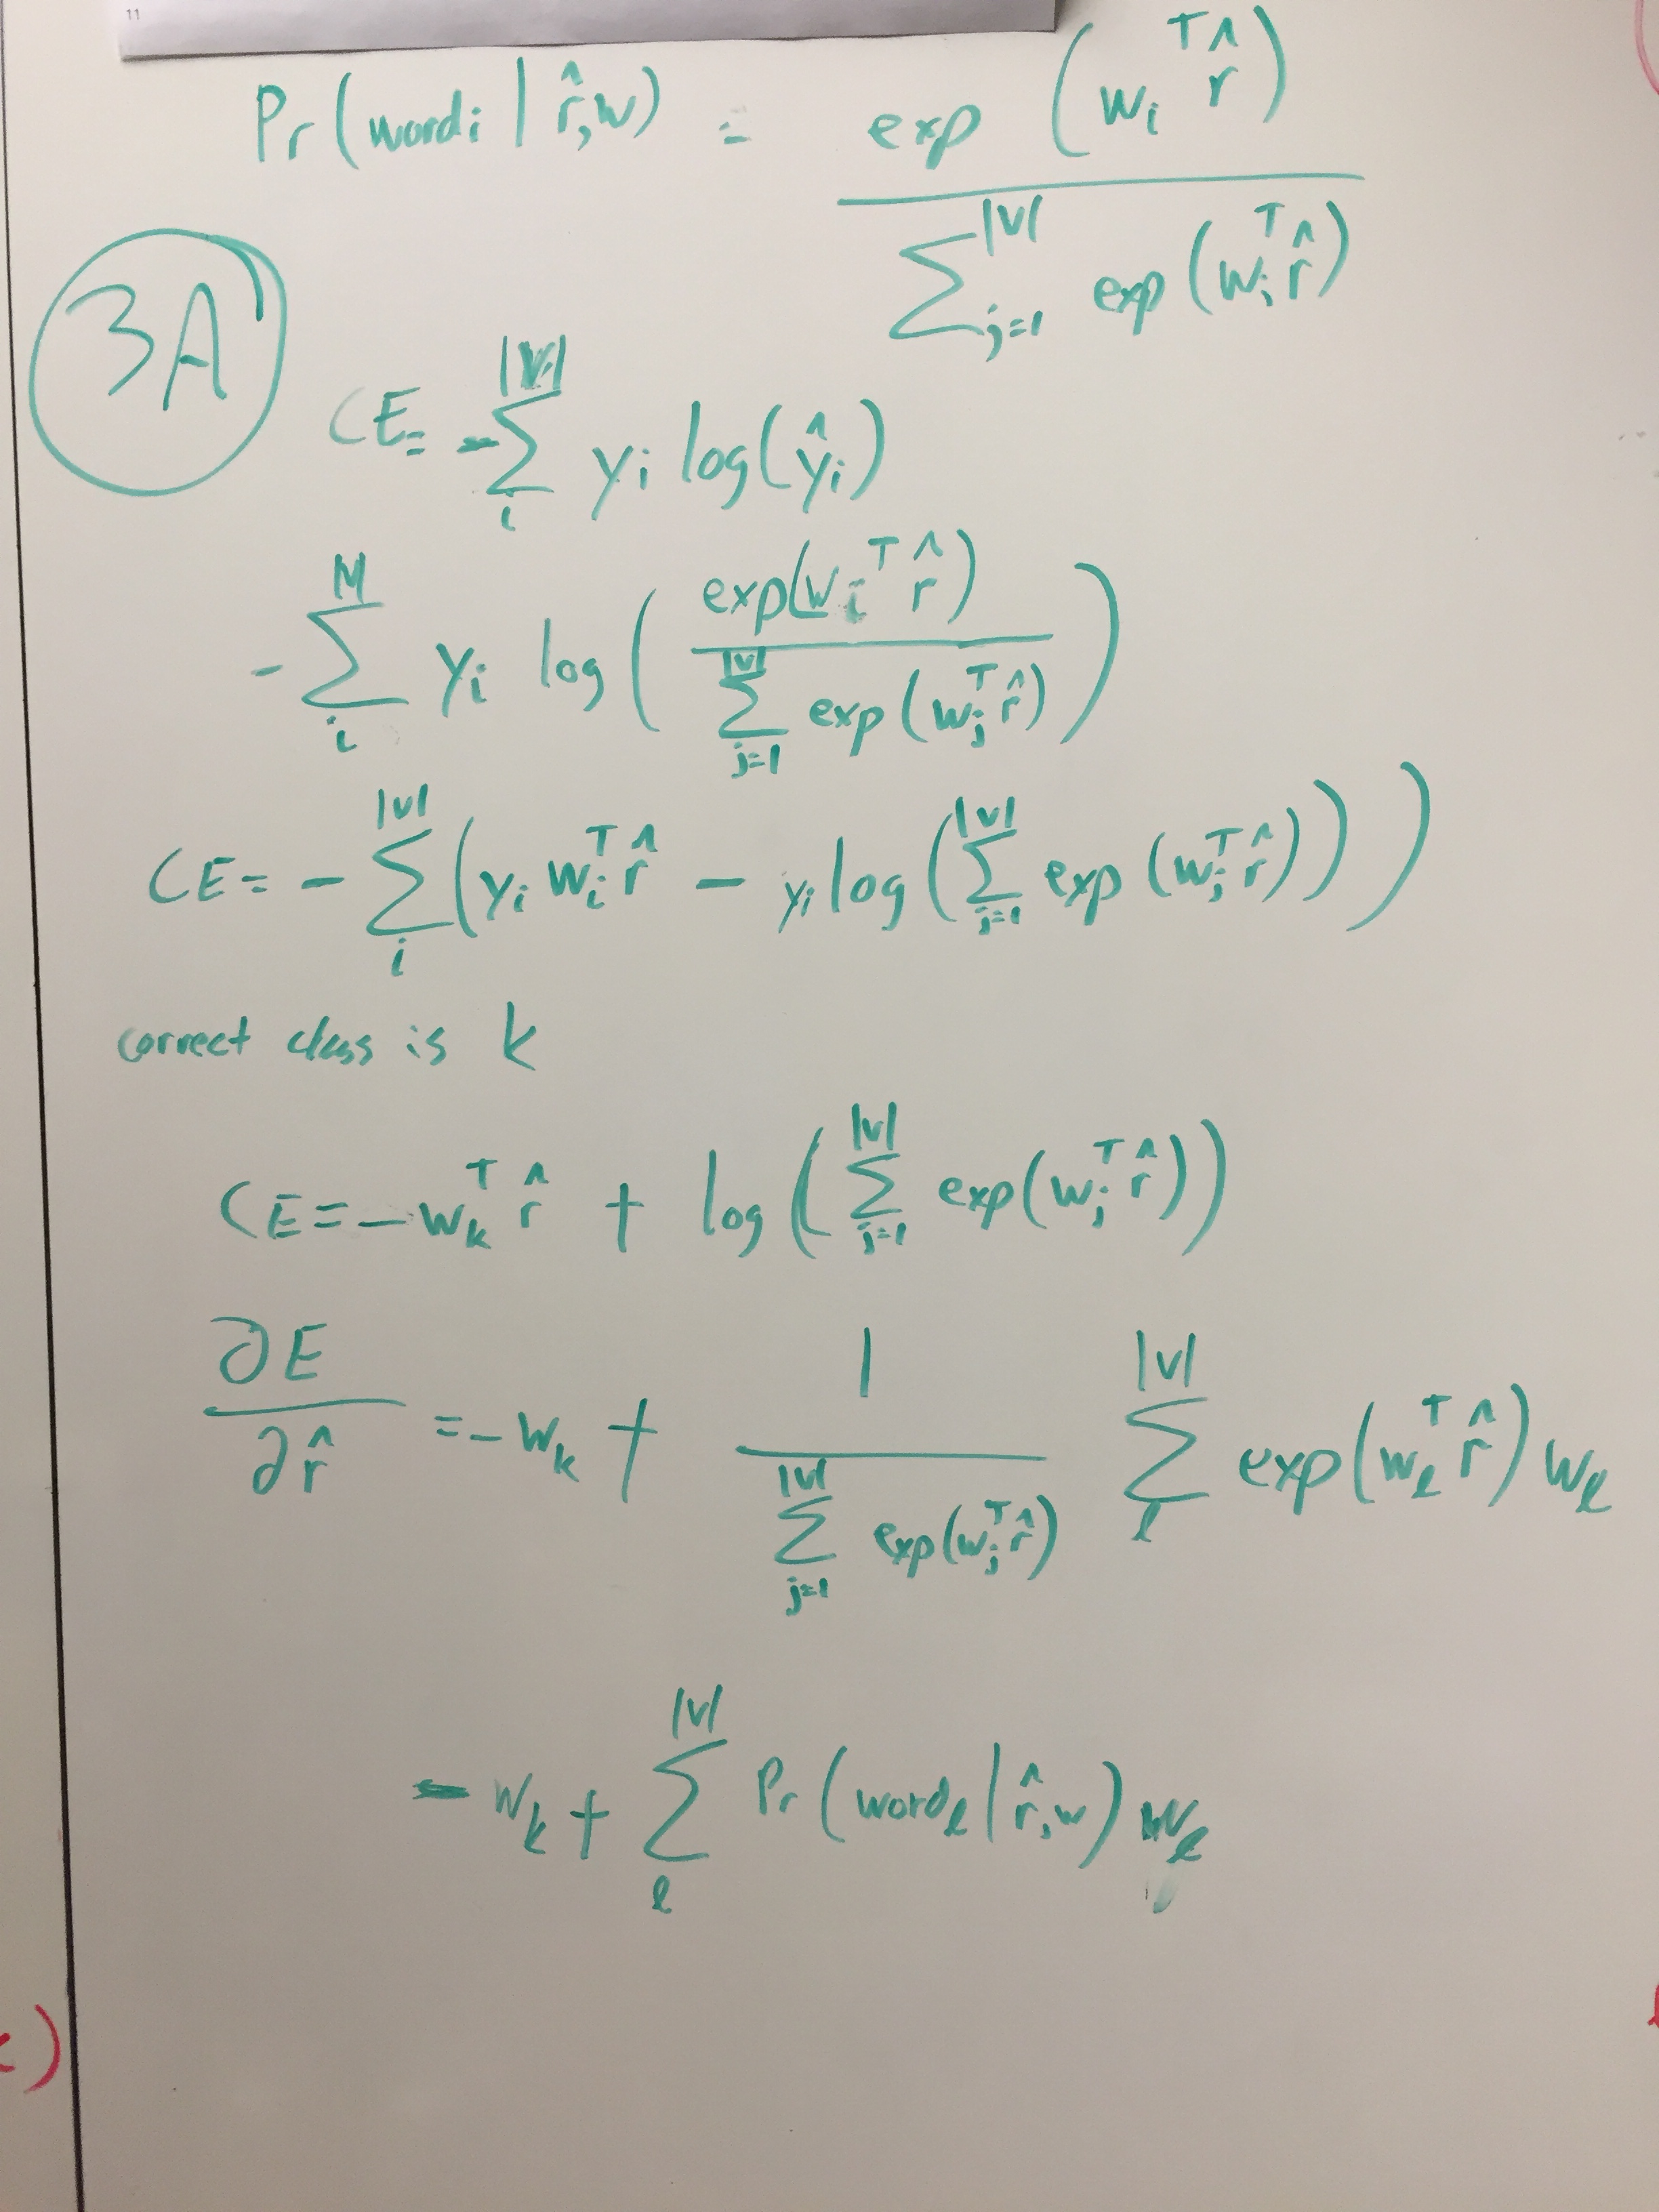 11
Pr(word_i | r̂, w) = exp(w_i^T r̂) / ∑_{j=1}^{|V|} exp(w_j^T r̂)
3A
CE = -∑_i^{|V|} y_i log(ŷ_i)
-∑_i^{|V|} y_i log( exp(w_i^T r̂) / ∑_{j=1}^{|V|} exp(w_j^T r̂) )
CE = -∑_i^{|V|} (y_i w_i^T r̂ - y_i log(∑_{j=1}^{|V|} exp(w_j^T r̂)))
correct class is k
CE = -w_k^T r̂ + log(∑_{j=1}^{|V|} exp(w_j^T r̂))
∂E / ∂r̂ = -w_k + 1 / ∑_{j=1}^{|V|} exp(w_j^T r̂) ∑_l^{|V|} exp(w_l^T r̂) w_l
-w_k + ∑_l^{|V|} Pr(word_l | r̂, w) w_l
)